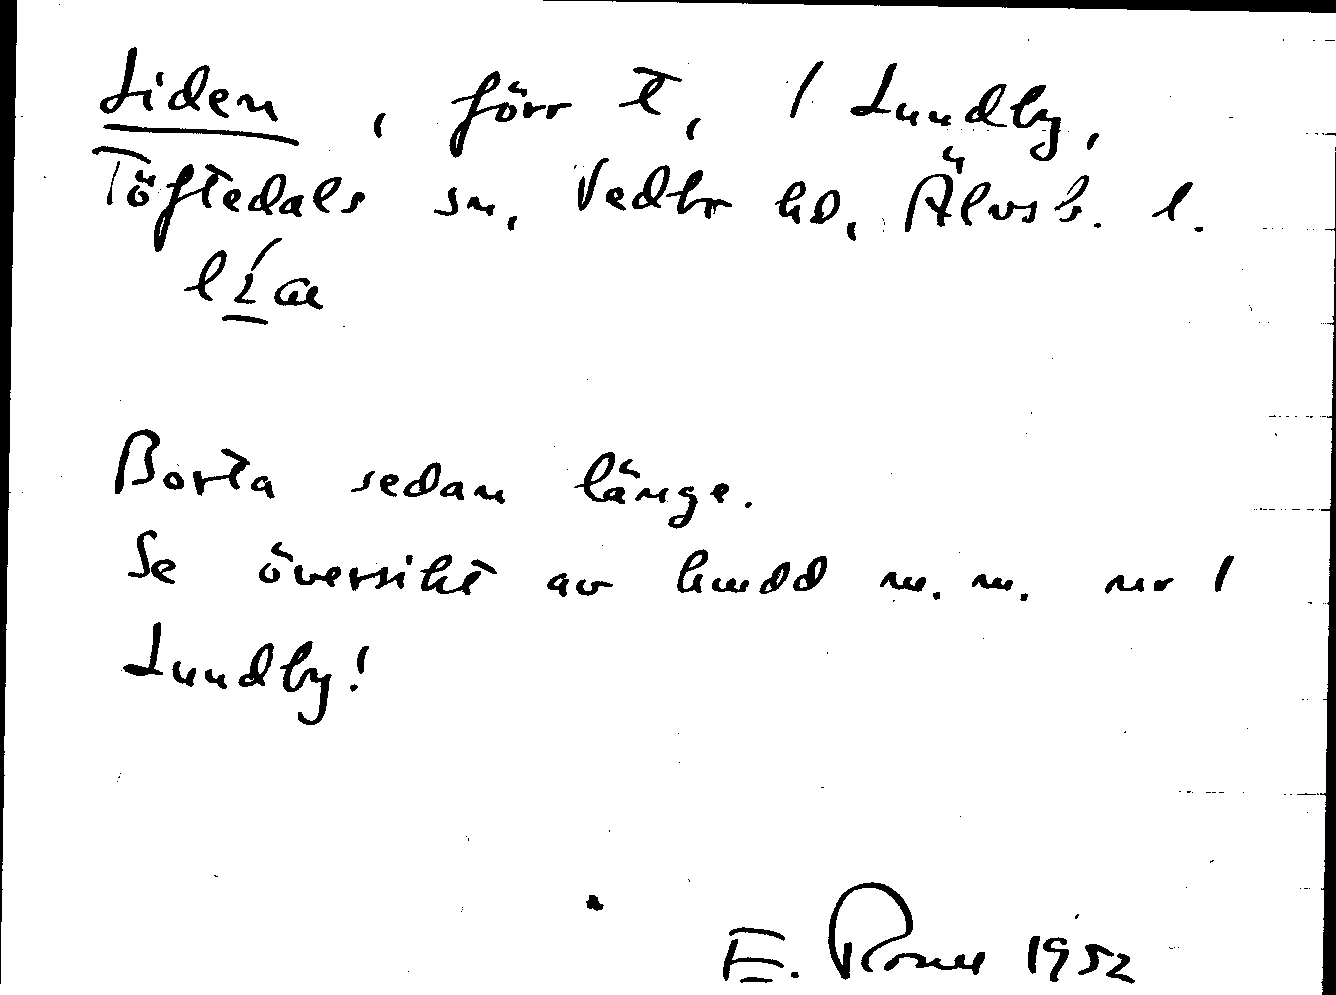 Liden, förr t, 1 Lundby,
Töftedals sn, Vedbr hd, Älvsb. l.
Borta sedan länge.
Se översikt av hmdd m. m. nr 1
Lundby!
E. 1952